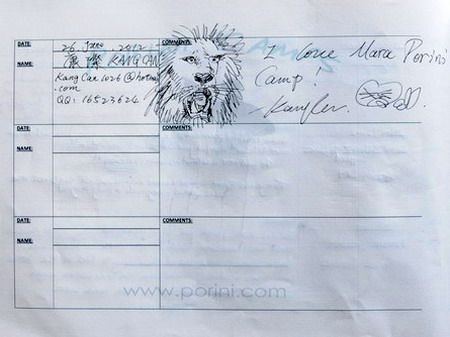 DATE: 26 June, 2012
NAME: 康璨 KANG CAN
KangCan1026@hotmail
.com
QQ: 16523624
COMMENTS: I love Mara Porini
Camp!
DATE:
NAME:
COMMENTS:
DATE:
NAME:
COMMENTS:
www.porini.com